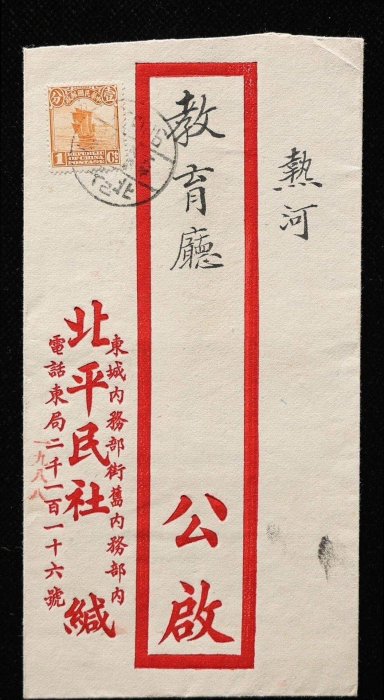 熱河
教育廳
公啟
東城內務部街舊內務部內
北平民社 緘
電話東局二千一百一十六號
一九八八
分 壹
1 Cs
REPUBLIC
OF CHINA
POSTAGE
北